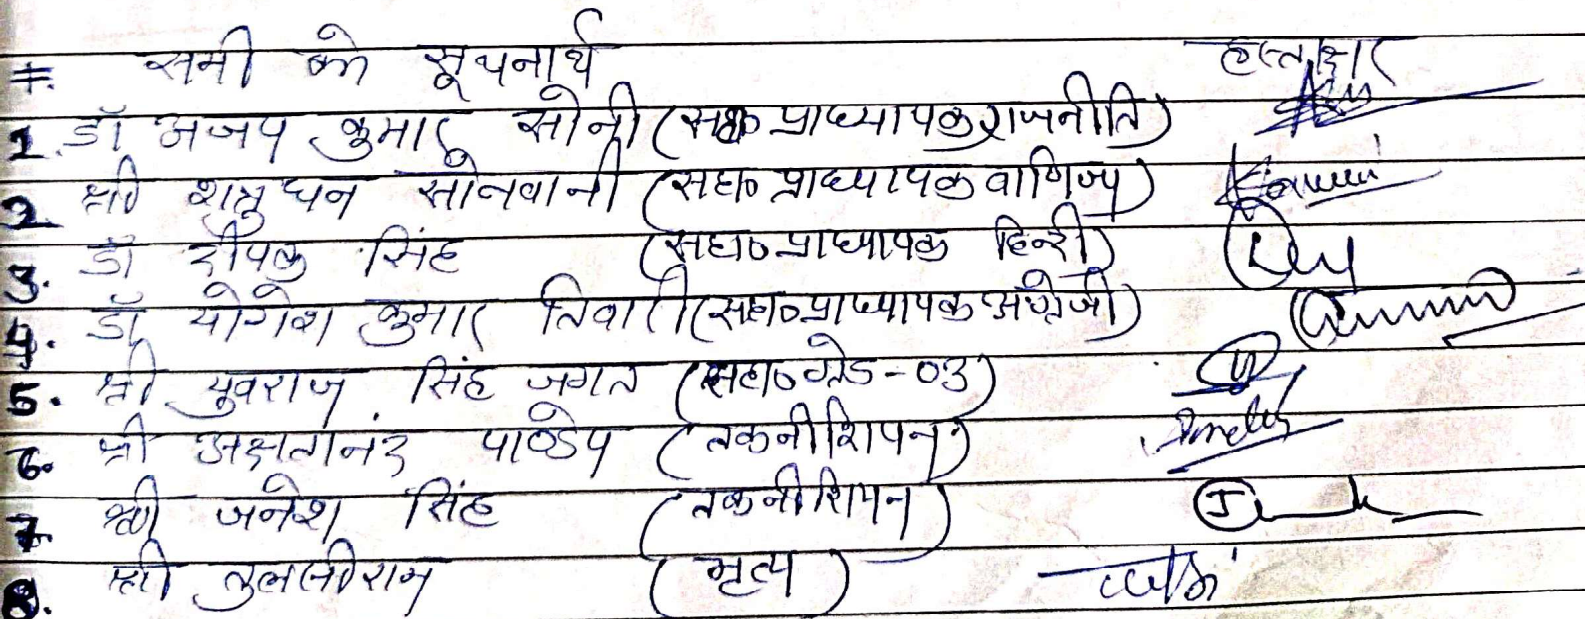 #. सभी को सूचनार्थ हस्ताक्षर
1. डॉ अजय कुमार सोनी (सहा० प्राध्यापक राजनीति)
2. श्री शत्रुधन सोनवानी (सहा० प्राध्यापक वाणिज्य)
3. डॉ दीपक सिंह (सहा० प्राध्यापक हिन्दी)
4. डॉ योगेश कुमार तिवारी (सहा० प्राध्यापक अंग्रेजी)
5. श्री युवराज सिंह जगत (सहा० ग्रेड-03)
6. श्री अक्षतानंद पाण्डेय (तकनीशियन)
7. श्री जनेश सिंह (तकनीशियन)
8. श्री तुलसीराम (भृत्य)